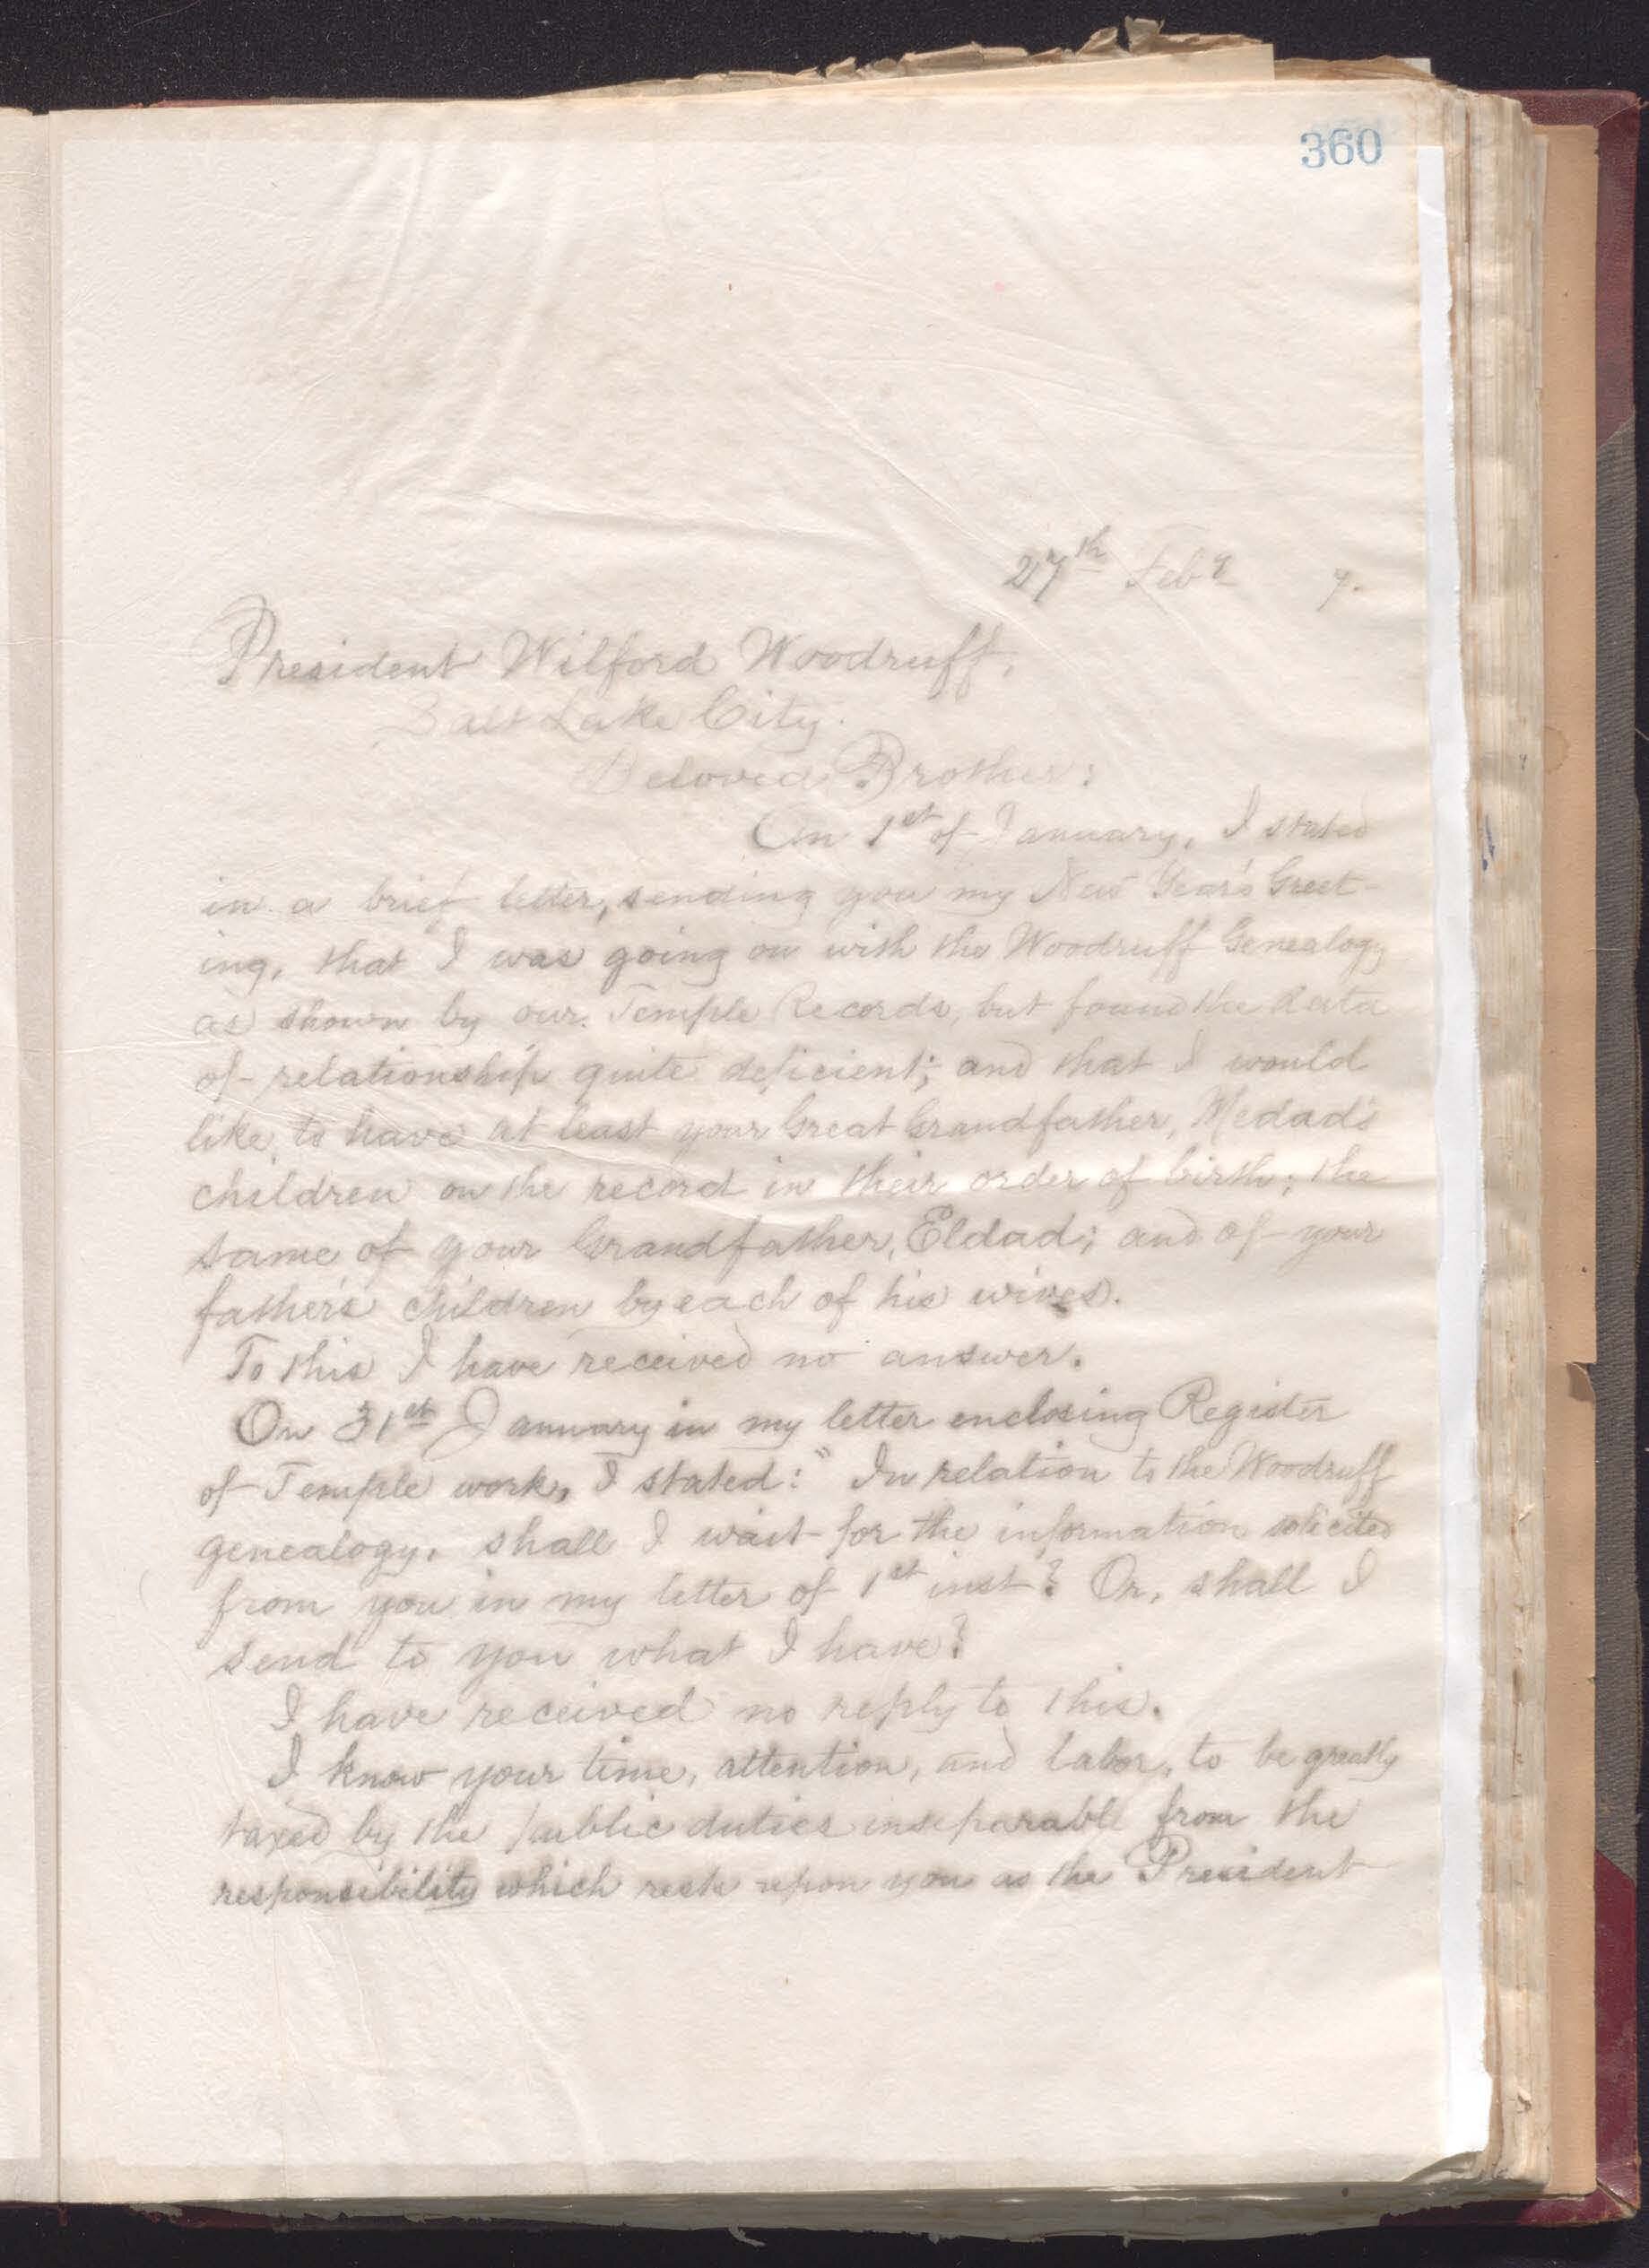 360
27th Feby 7.
President Wilford Woodruff,
Salt Lake City.
Beloved Brother:
On 1st of January, I stated
in a brief letter, sending you my New Year's Greet-
ing, that I was going on with the Woodruff Genealogy
as shown by our Temple Records, but found the data
of relationship quite deficient; and that I would
like to have at least your Great Grandfather, Medad's
children on the record in their order of birth; the
same of your Grandfather, Eldad; and of your
father's children by each of his wives.
To this I have received no answer.
On 31st January in my letter enclosing Register
of Temple work, I stated: "In relation to the Woodruff
genealogy, shall I wait for the information solicited
from you in my letter of 1st inst? Or, shall I
send to you what I have?
I have received no reply to this.
I know your time, attention, and labor, to be greatly
taxed by the public duties inseparable from the
responsibility which rests upon you as the President